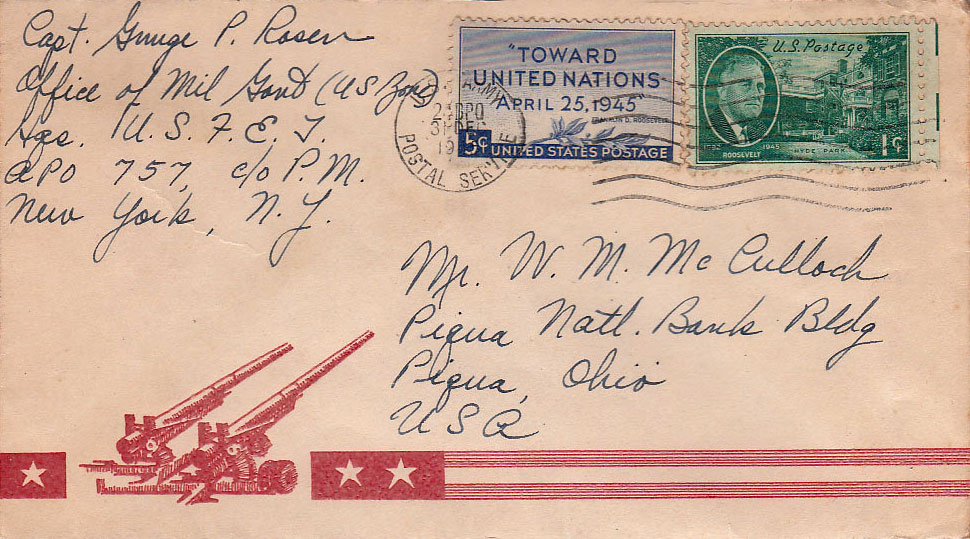 Capt. George P. Rosen
Office of Mil Govt (US Zone)
Hqs. U.S.F.E.T.
APO 757, c/o P.M.
New York, N.Y.
"TOWARD
UNITED NATIONS"
APRIL 25, 1945
FRANKLIN D. ROOSEVELT
5¢ UNITED STATES POSTAGE
U.S. Postage
1945
ROOSEVELT
HYDE PARK
1¢
ARMY
31 DEC
19
POSTAL SERVICE
Mr. W. M. McCulloch
Piqua Natl. Bank Bldg
Piqua, Ohio
USA